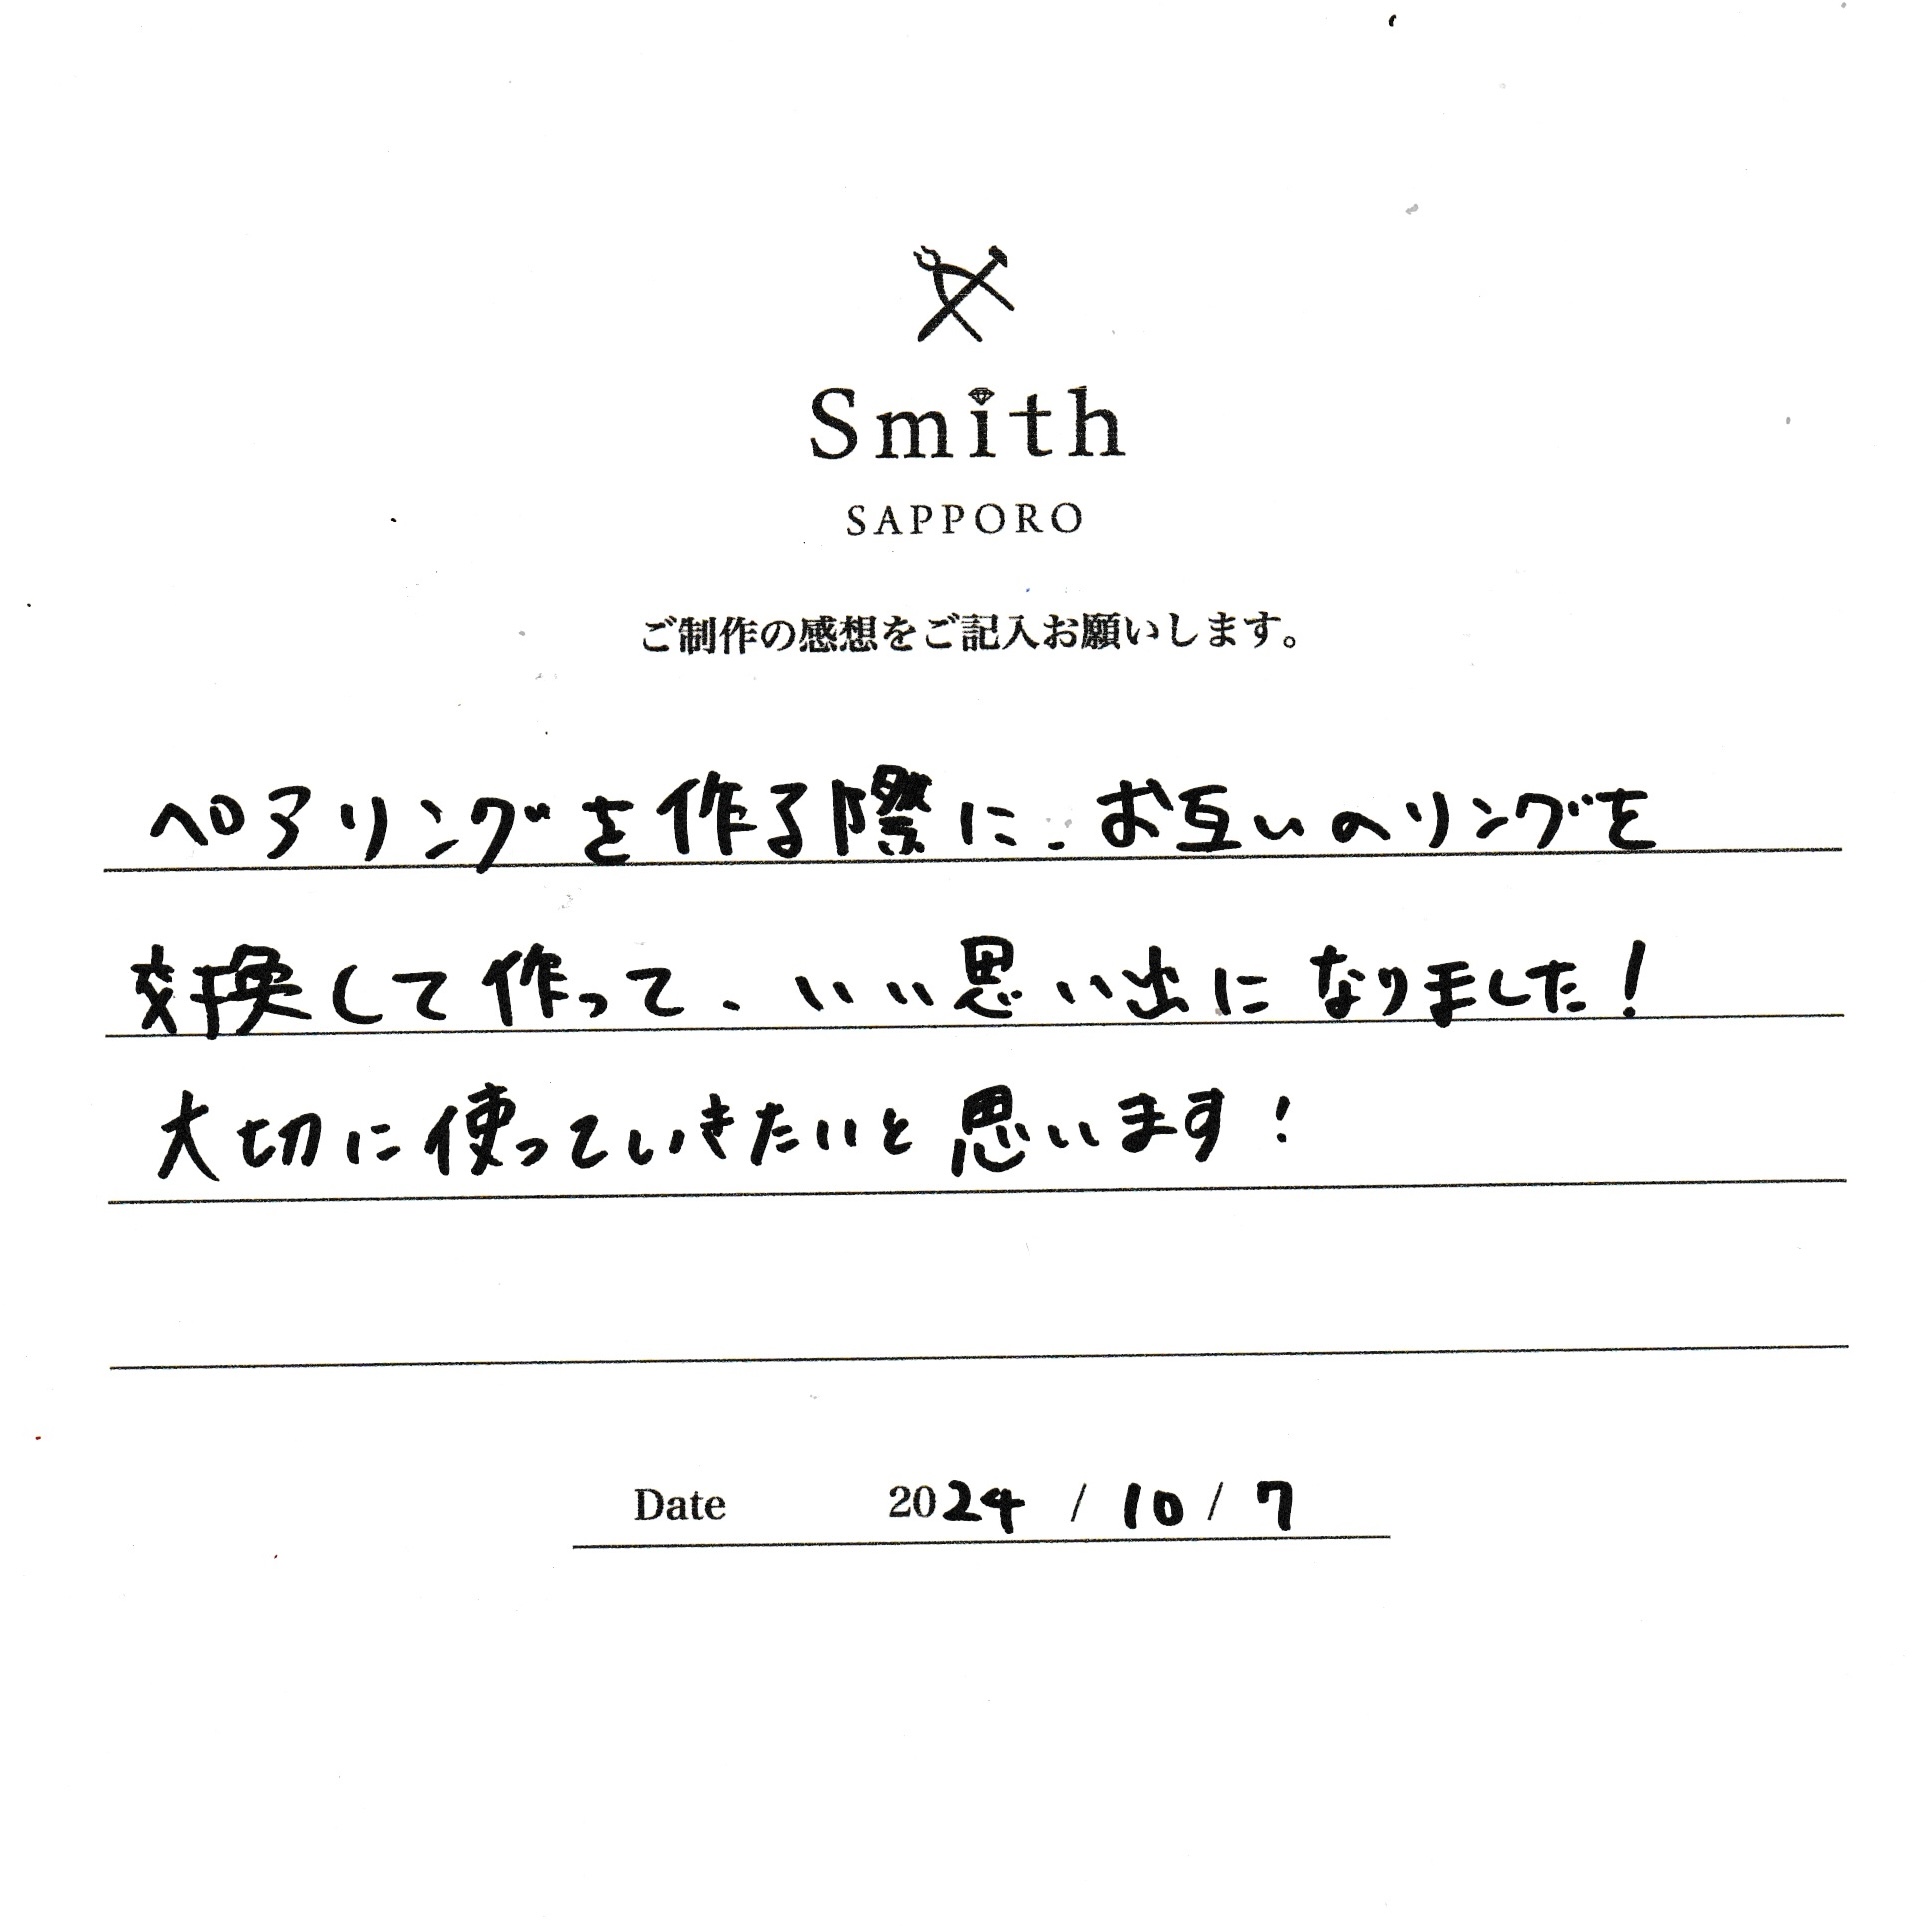 Smith
SAPPORO
ご制作の感想をご記入お願いします。
ペアリングを作る際に、お互いのリングを
交換して作って、いい思い出になりました!
大切に使っていきたいと思います!
Date 2024 / 10 / 7